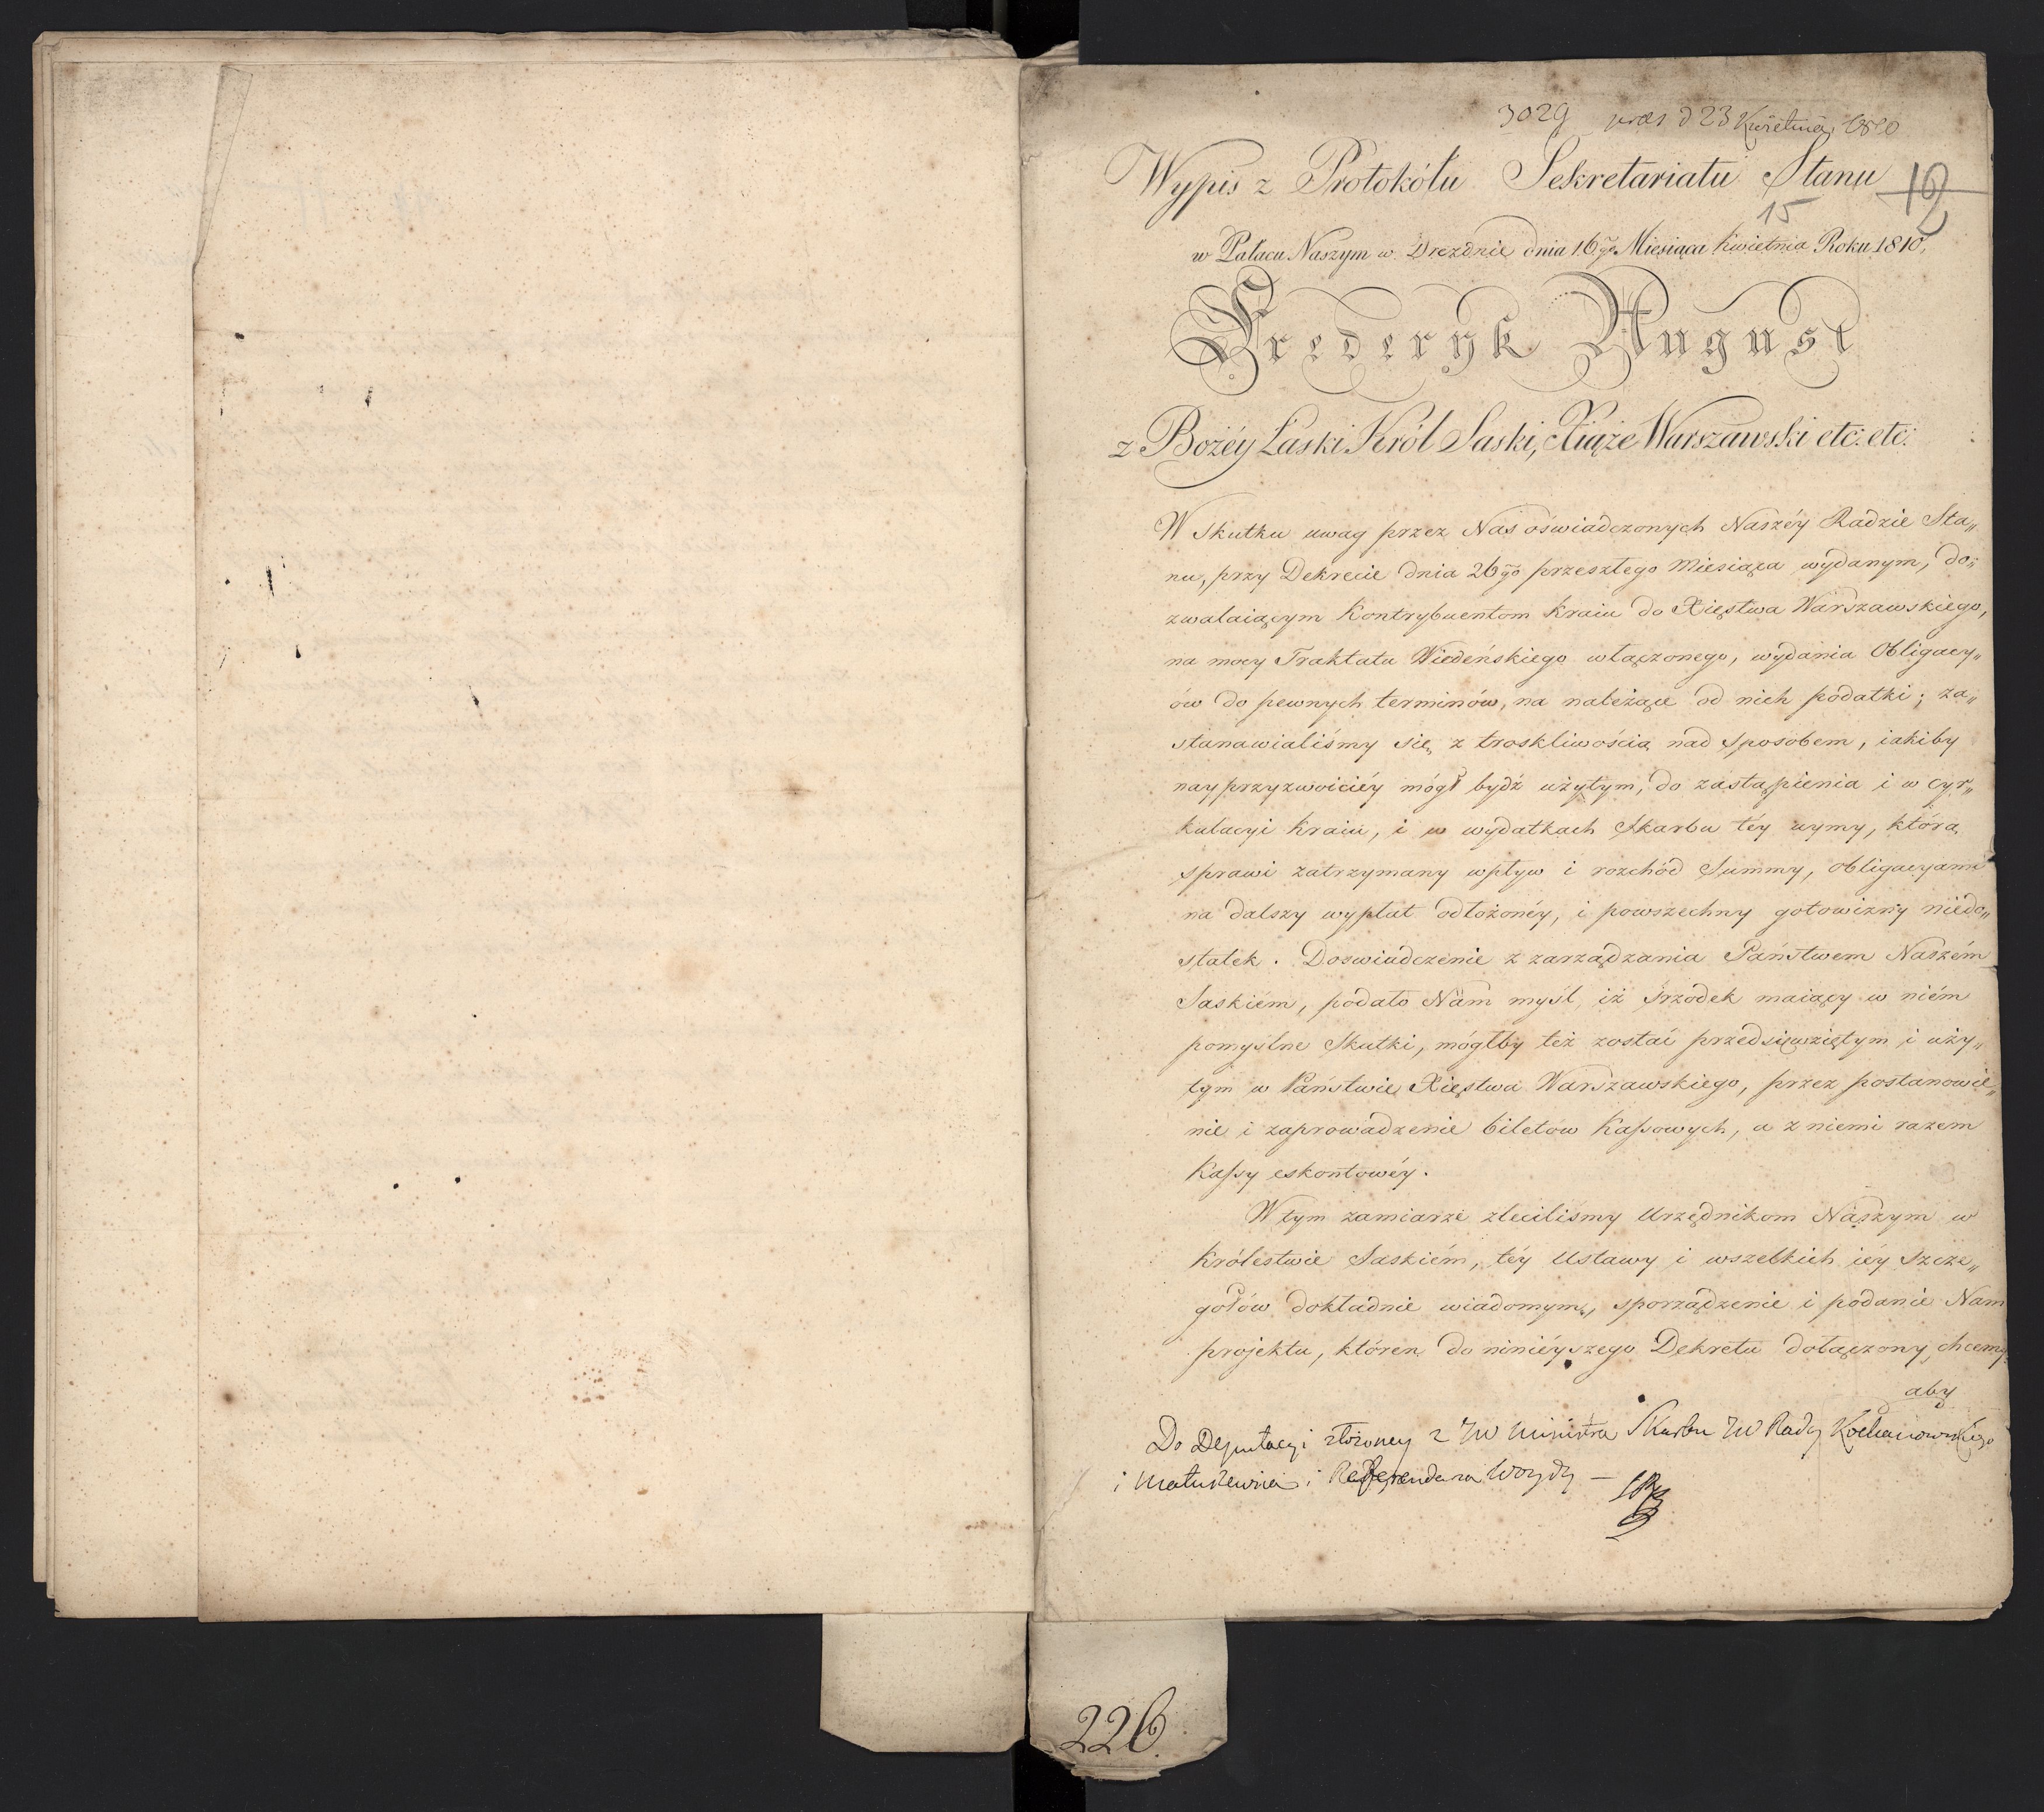 3029 præs d 23 Kwietnia 1810
Wypis z Protokółu Sekretariatu Stanu
12
15
w Pałacu Naszym w Dreźnie dnia 16go Miesiąca Kwietnia Roku 1810,
Frederyk August
z Bożéy Łaski Król Saski, Xiąże Warszawski etc: etc:
W skutku uwag przez Nas oświadczonych Naszéy Radzie Sta„
nu, przy Dekrecie dnia 26go przeszłego Miesiąca wydanym, do„
zwalaiącym Kontrybuentom kraiu do Xięstwa Warszawskiego,
na mocy Traktatu Wiedeńskiego włączonego, wydania Obligacy„
ów do pewnych terminów, na należące od nich podatki; za„
stanawialiśmy się z troskliwością nad sposobem, iakiby
nayprzyzwoiciéy mógł bydź użytym, do zastąpienia i w cyr„
kulacyi kraiu, i w wydatkach Skarbu téy uymy, którą
sprawi zatrzymany wpływ i rozchód Summy, obligacyami
na dalszy wypłat odłożonéy, i powszechny gotowizny niedo„
statek. Doświadczenie z zarządzania Państwem Naszém
Saskiém, podało Nam myśl, iż śrzodek maiący w niém
pomyślne skutki, mógłby też zostać przedsięwziętym i uży„
tym w Państwie Xięstwa Warszawskiego, przez postanowie„
nie i zaprowadzenie biletów Kassowych, a z niemi razem
Kassy eskontowéy.
W tym zamiarze zleciliśmy Urzędnikom Naszym w
Królestwie Saskiém, téy Ustawy i wszelkich iéy szcze„
gółów dokładnie wiadomym, sporządzenie i podanie Nam
projektu, któren do ninieyszego Dekretu dołączony, chcemy
aby
Do Deputacyi złożoney z JW Ministra Skarbu JW Rady Kochanowskiego
i Matusewica i Referendarza Woydy —
226.